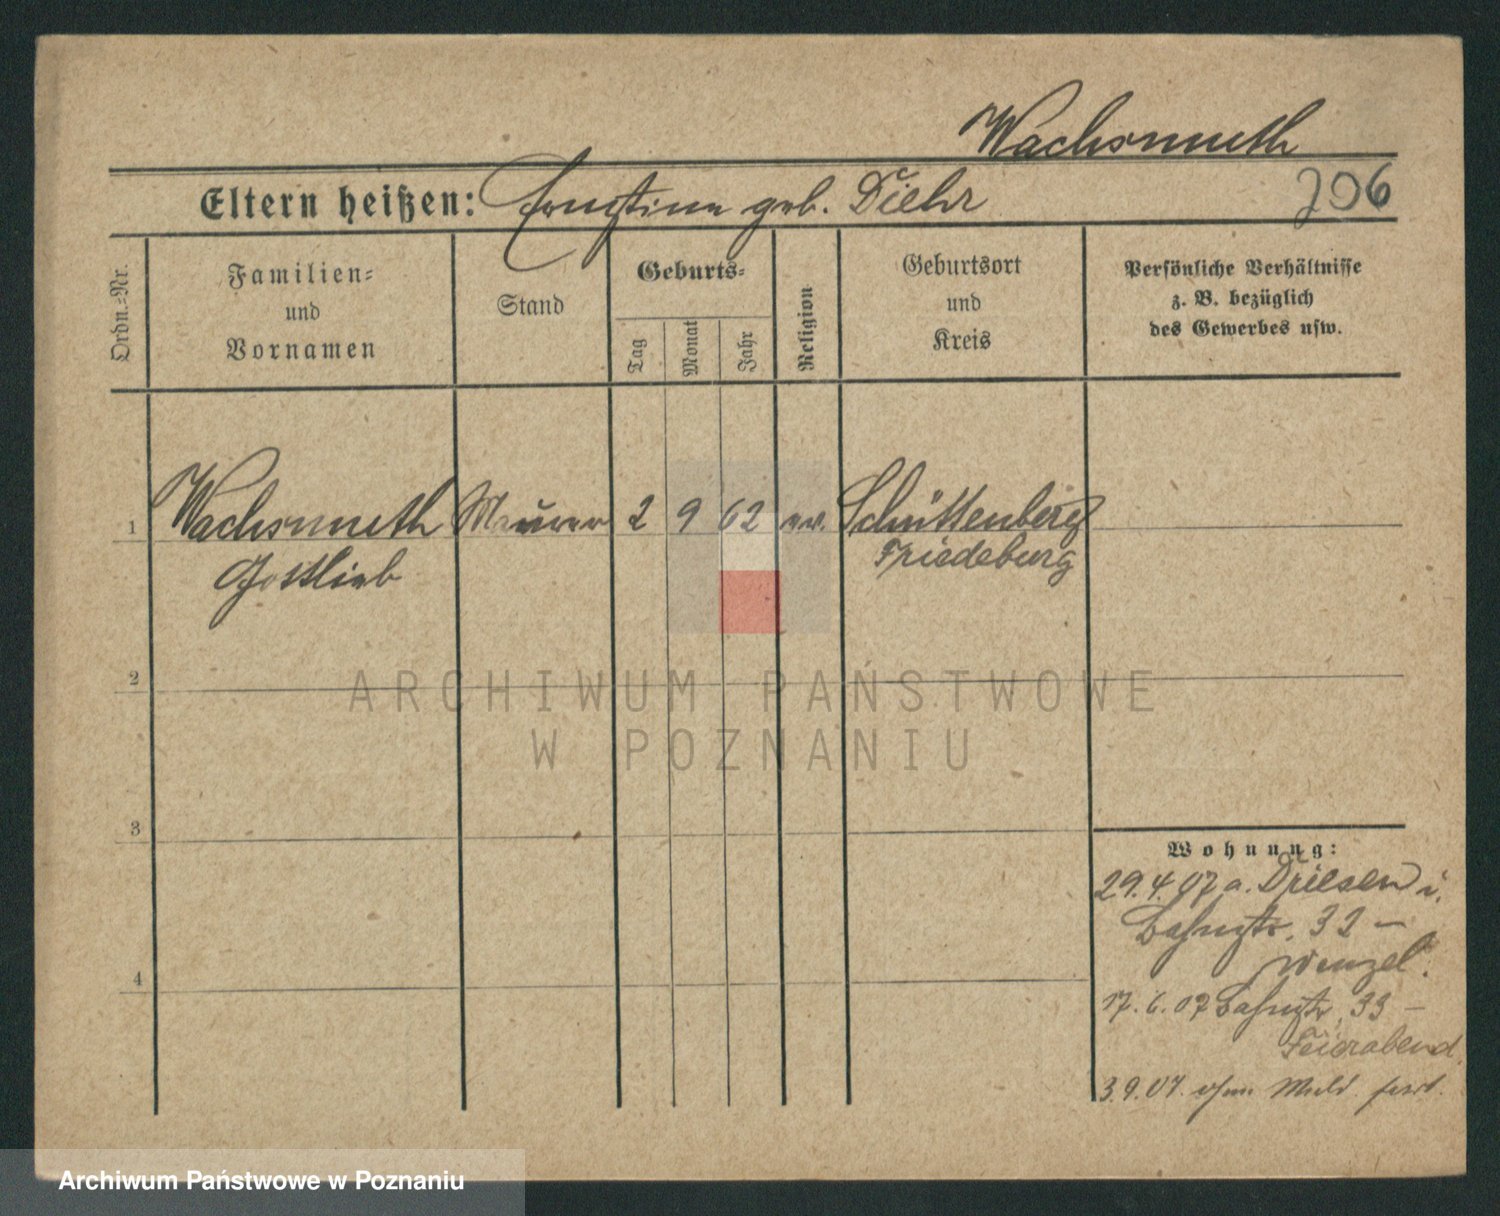 Wachsmuth
Eltern heißen: Ernstine geb. Diehr
206
Ordn.=Nr.
Familien=
und
Vornamen
Stand
Geburts=
Tag
Monat
Jahr
Religion
Geburtsort
und
Kreis
Persönliche Verhältnisse
z. B. bezüglich
des Gewerbes usw.
1 Wachsmuth Maurer 2 9 62 ev. Schüttenberg
Gottlieb Friedeburg
2
3
4
Wohnung:
29.4.07 a. Driesen i.
Bahnstr. 32 —
Wenzel.
17.6.07 Bahnstr. 33 —
Feierabend.
3.9.07. ohne Meld. fort.
ARCHIWUM PAŃSTWOWE
W POZNANIU
Archiwum Państwowe w Poznaniu